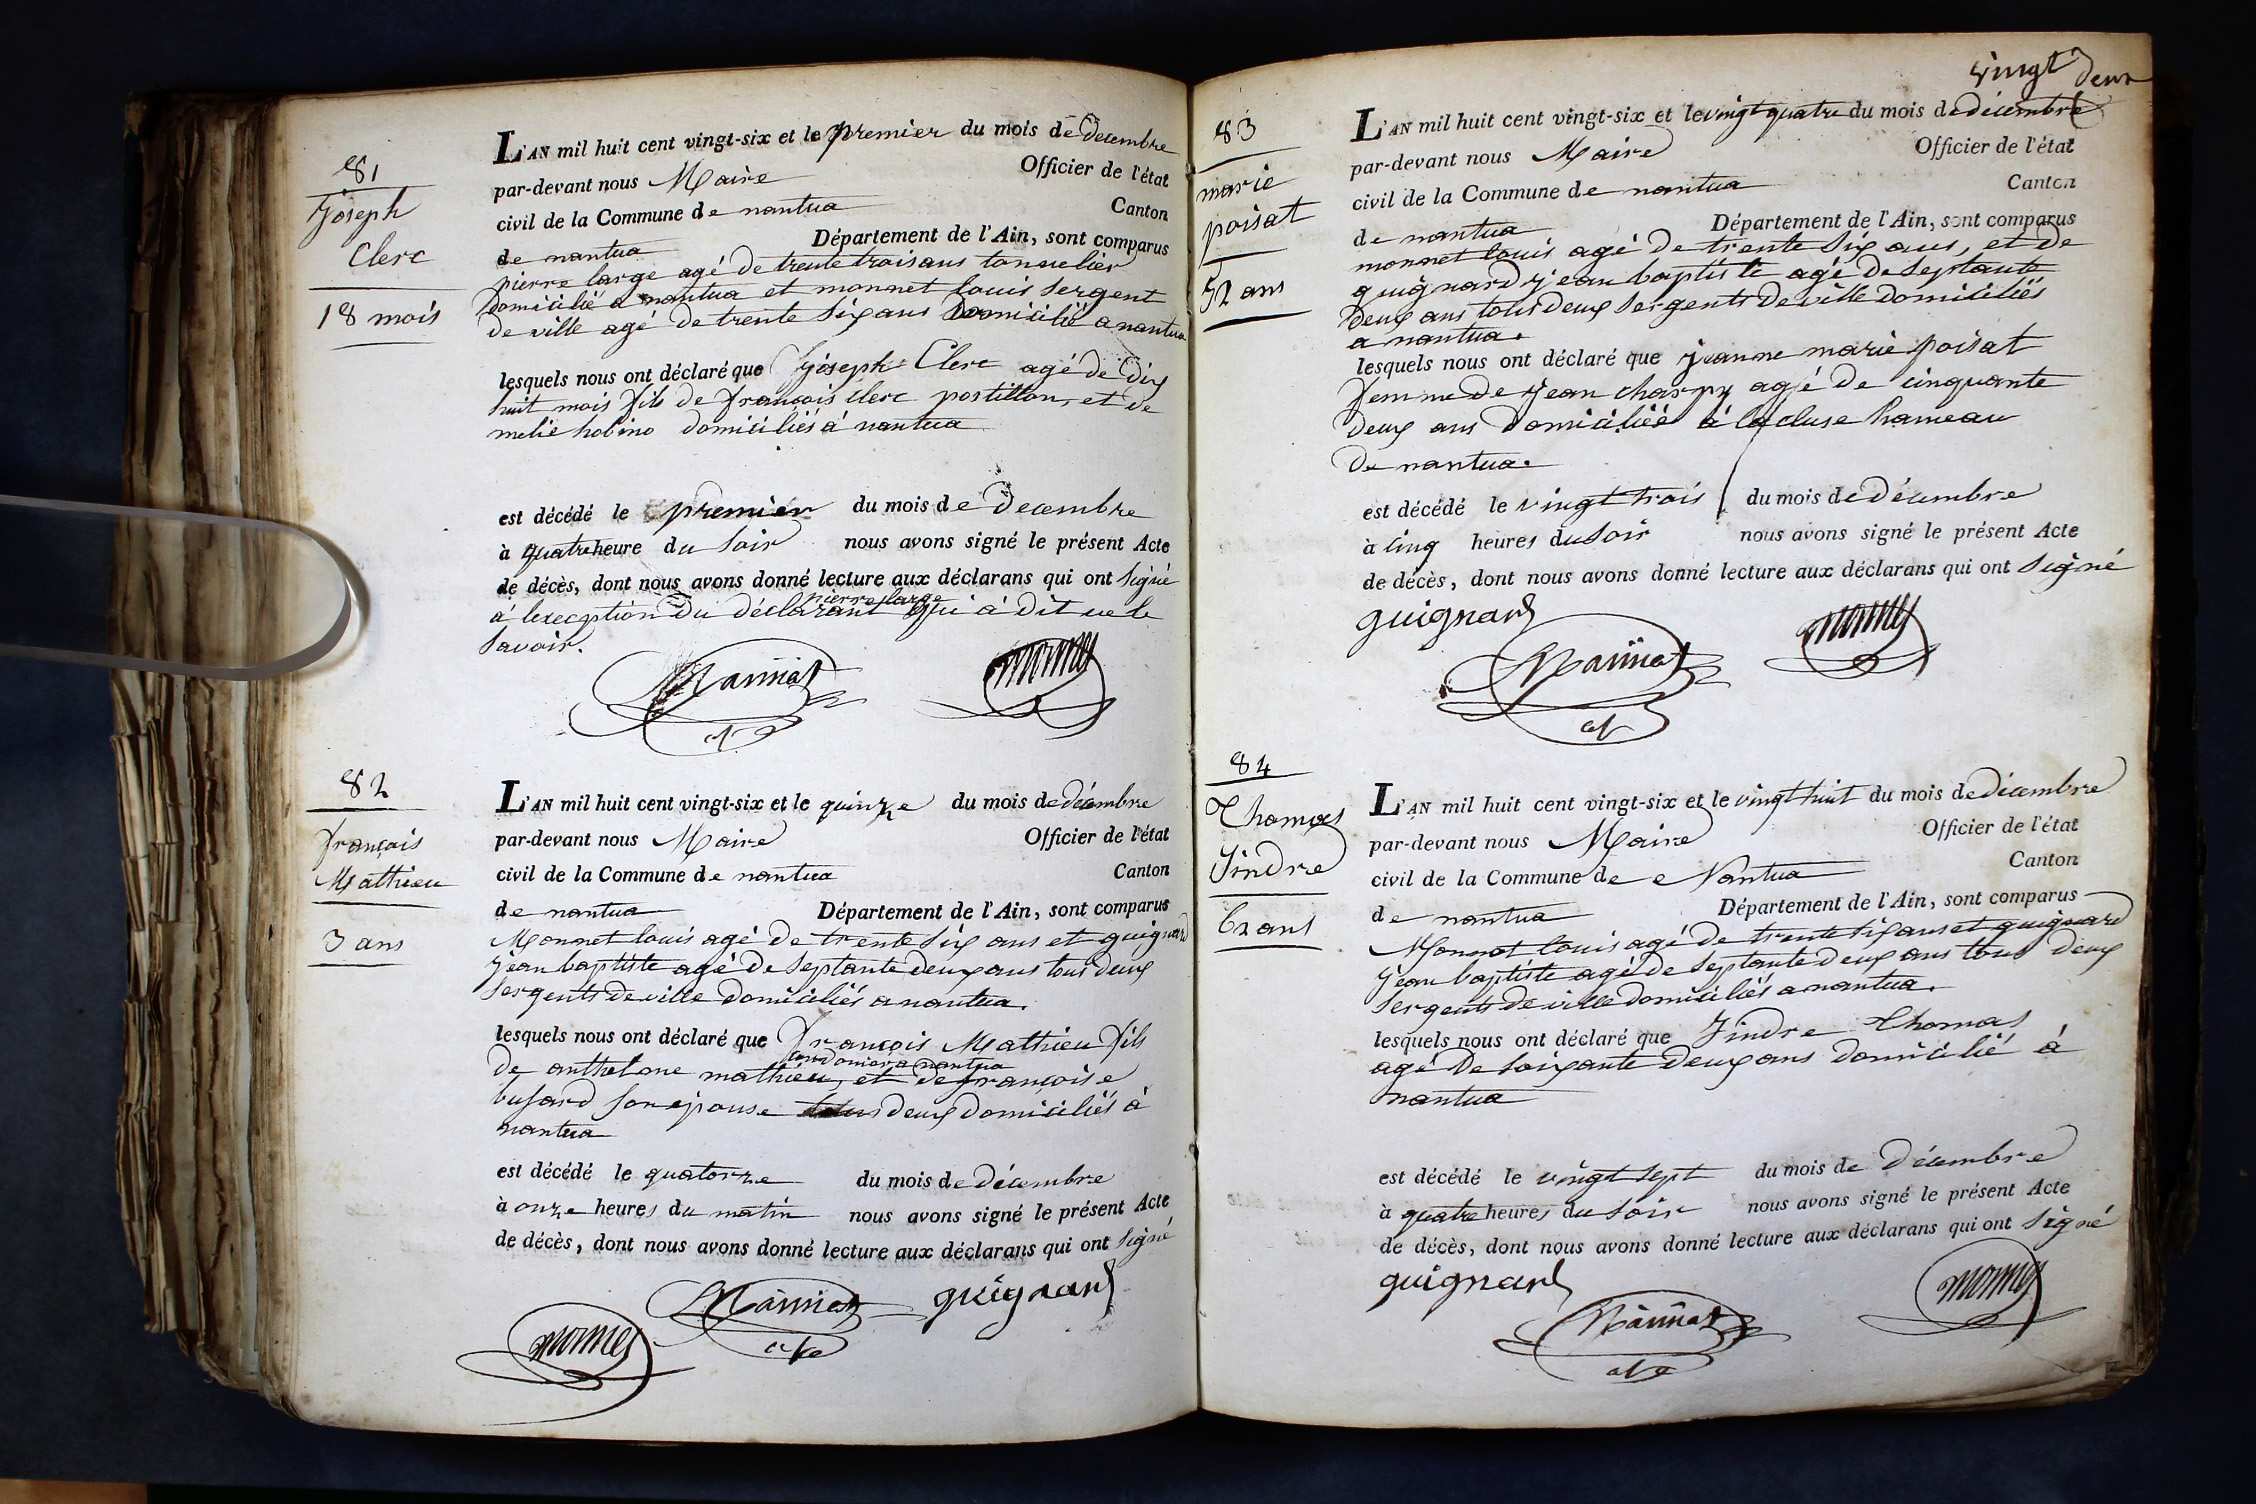 81
Joseph
Clerc
18 mois
L'AN mil huit cent vingt-six et le premier du mois de Decembre
par-devant nous Maire Officier de l'état
civil de la Commune de nantua Canton
de nantua Département de l'Ain, sont comparus
pierre large agé de trente trois ans tonnelier
domicilié a nantua et monnet louis sergent
de ville agé de trente six ans domicilié a nantua
lesquels nous ont déclaré que joseph Clerc agé de dix
huit mois fils de françois clerc postillon, et de
melie hobino domiciliés à nantua
est décédé le premier du mois de Decembre
à quatre heure du soir nous avons signé le présent Acte
de décès, dont nous avons donné lecture aux déclarans qui ont signé
pierre large
a l'exception du déclarant qui à dit ne le
savoir.
82
françois
Mathieu
3 ans
L'AN mil huit cent vingt-six et le quinze du mois de décembre
par-devant nous Maire Officier de l'état
civil de la Commune de nantua Canton
de nantua Département de l'Ain, sont comparus
Monnet louis agé de trente six ans et guignard
jean baptiste agé de septante deux ans tous deux
sergents de ville domiciliés a nantua.
lesquels nous ont déclaré que françois Mathieu fils
cordonier a nantua
de anthelme mathieu, et de françoise
busard son épouse tous deux domiciliés à
nantua
est décédé le quatorze du mois de décembre
à onze heures du matin nous avons signé le présent Acte
de décès, dont nous avons donné lecture aux déclarans qui ont signé
guignard
monnet
vingt deux
83
marie
poisat
52 ans
L'AN mil huit cent vingt-six et le vingt quatre du mois de décembre
par-devant nous Maire Officier de l'état
civil de la Commune de nantua Canton
de nantua Département de l'Ain, sont comparus
monnet louis agé de trente six ans, et de
guignard jean baptiste agé de septante
deux ans tous deux sergents de ville domiciliés
a nantua.
lesquels nous ont déclaré que jeanne marie poisat
femme de jean charpy agé de cinquante
deux ans domiciliée à la cluse hameau
de nantua.
est décédé le vingt trois du mois de décembre
à cinq heures du soir nous avons signé le présent Acte
de décès, dont nous avons donné lecture aux déclarans qui ont signé
guignard
monnet
84
Thomas
Jindre
62 ans
L'AN mil huit cent vingt-six et le vingt huit du mois de décembre
par-devant nous Maire Officier de l'état
civil de la Commune de Nantua Canton
de nantua Département de l'Ain, sont comparus
Monnet louis agé de trente six ans et guignard
jean baptiste agé de septante deux ans tous deux
sergents de ville domiciliés a nantua.
lesquels nous ont déclaré que Jindre Thomas
agé de soixante deux ans domicilié à
nantua
est décédé le vingt sept du mois de décembre
à quatre heures du soir nous avons signé le présent Acte
de décès, dont nous avons donné lecture aux déclarans qui ont signé
guignard
monnet